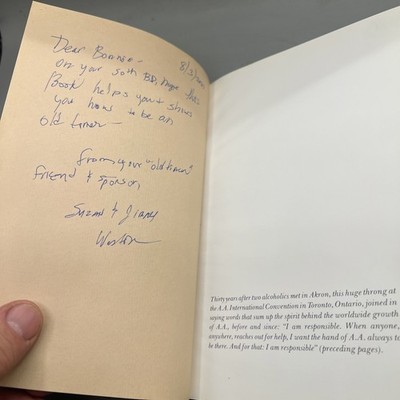 Dear Bonnie -
8/3/
on your 50th BD, hope this
Book helps you & shows
you how to be an
old timer -
from your "old timer"
friend & sponsor,
&
Thirty years after two alcoholics met in Akron, this huge throng at
the A.A. International Convention in Toronto, Ontario, joined in
saying words that sum up the spirit behind the worldwide growth
of A.A., before and since: "I am responsible. When anyone,
anywhere, reaches out for help, I want the hand of A.A. always to
be there. And for that: I am responsible" (preceding pages).